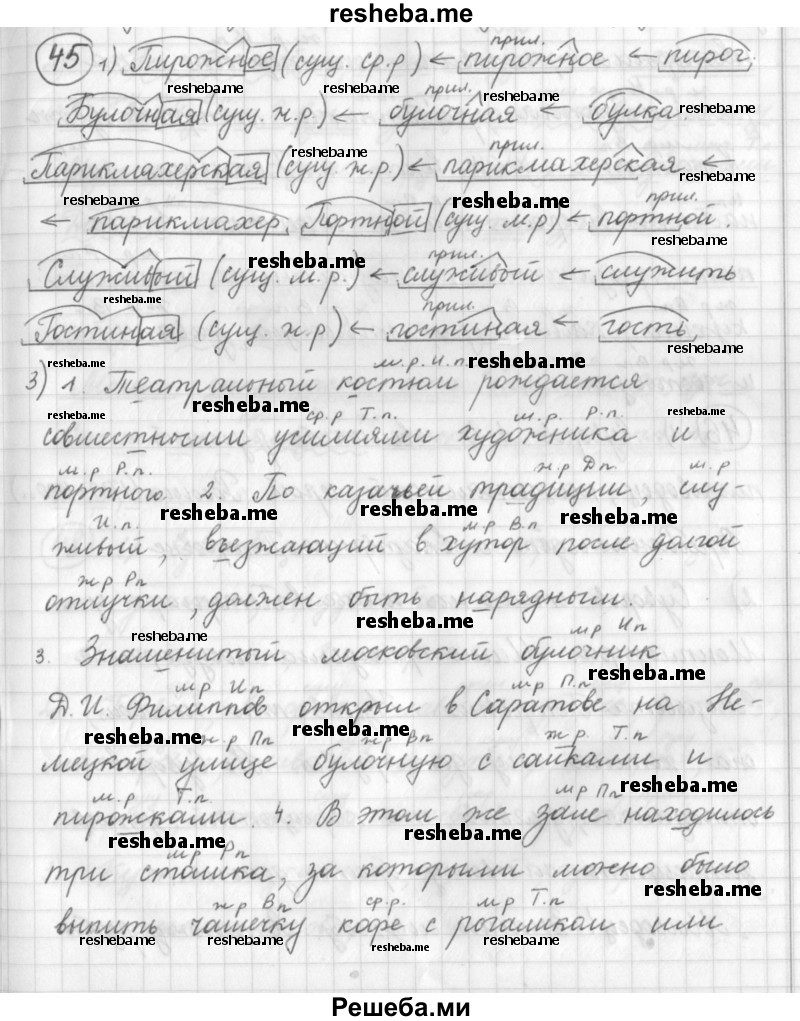 resheba.me
прил.
45 1) Пирожное (сущ. ср.р) ← пирожное ← пирог.
resheba.me resheba.me resheba.me
прил.
Булочная (сущ. ж.р) ← булочная ← булка.
resheba.me resheba.me resheba.me
прил.
Парикмахерская (сущ. ж.р.) ← парикмахерская ←
resheba.me resheba.me resheba.me
прил.
← парикмахер. Портной (сущ. м.р) ← портной.
resheba.me resheba.me
прил.
Служивый (сущ. м.р.) ← служивый ← служить
resheba.me
прил.
Гостиная (сущ. ж.р) ← гостиная ← гость
resheba.me resheba.me
м.р. И.п
3) 1. Театральный костюм рождается
resheba.me resheba.me resheba.me
ср.р Т.п. м.р. Р.п.
совместными усилиями художника и
м.р Р.п. ж.р Д.п. м.р
портного. 2. По казачьей традиции, слу-
resheba.me resheba.me resheba.me
И.п. м.р В.п
живый, въезжающий в хутор после долгой
ж.р Р.п
отлучки, должен быть нарядным.
resheba.me
м.р И.п
3. Знаменитый московский булочник
resheba.me
м.р И.п м.р П.п.
Д.И. Филиппов открыл в Саратове на Не-
resheba.me resheba.me resheba.me
ж.р П.п ж.р В.п ж.р. Т.п.
мецкой улице булочную с сайками и
resheba.me
м.р Т.п. м.р П.п
пирожками. 4. В этом же зале находилось
resheba.me resheba.me
м.р Р.п
три столика, за которыми можно было
resheba.me
ж.р В.п ср.р. м.р Т.п
выпить чашечку кофе с рогаликом или
resheba.me resheba.me resheba.me resheba.me
Решеба.ми